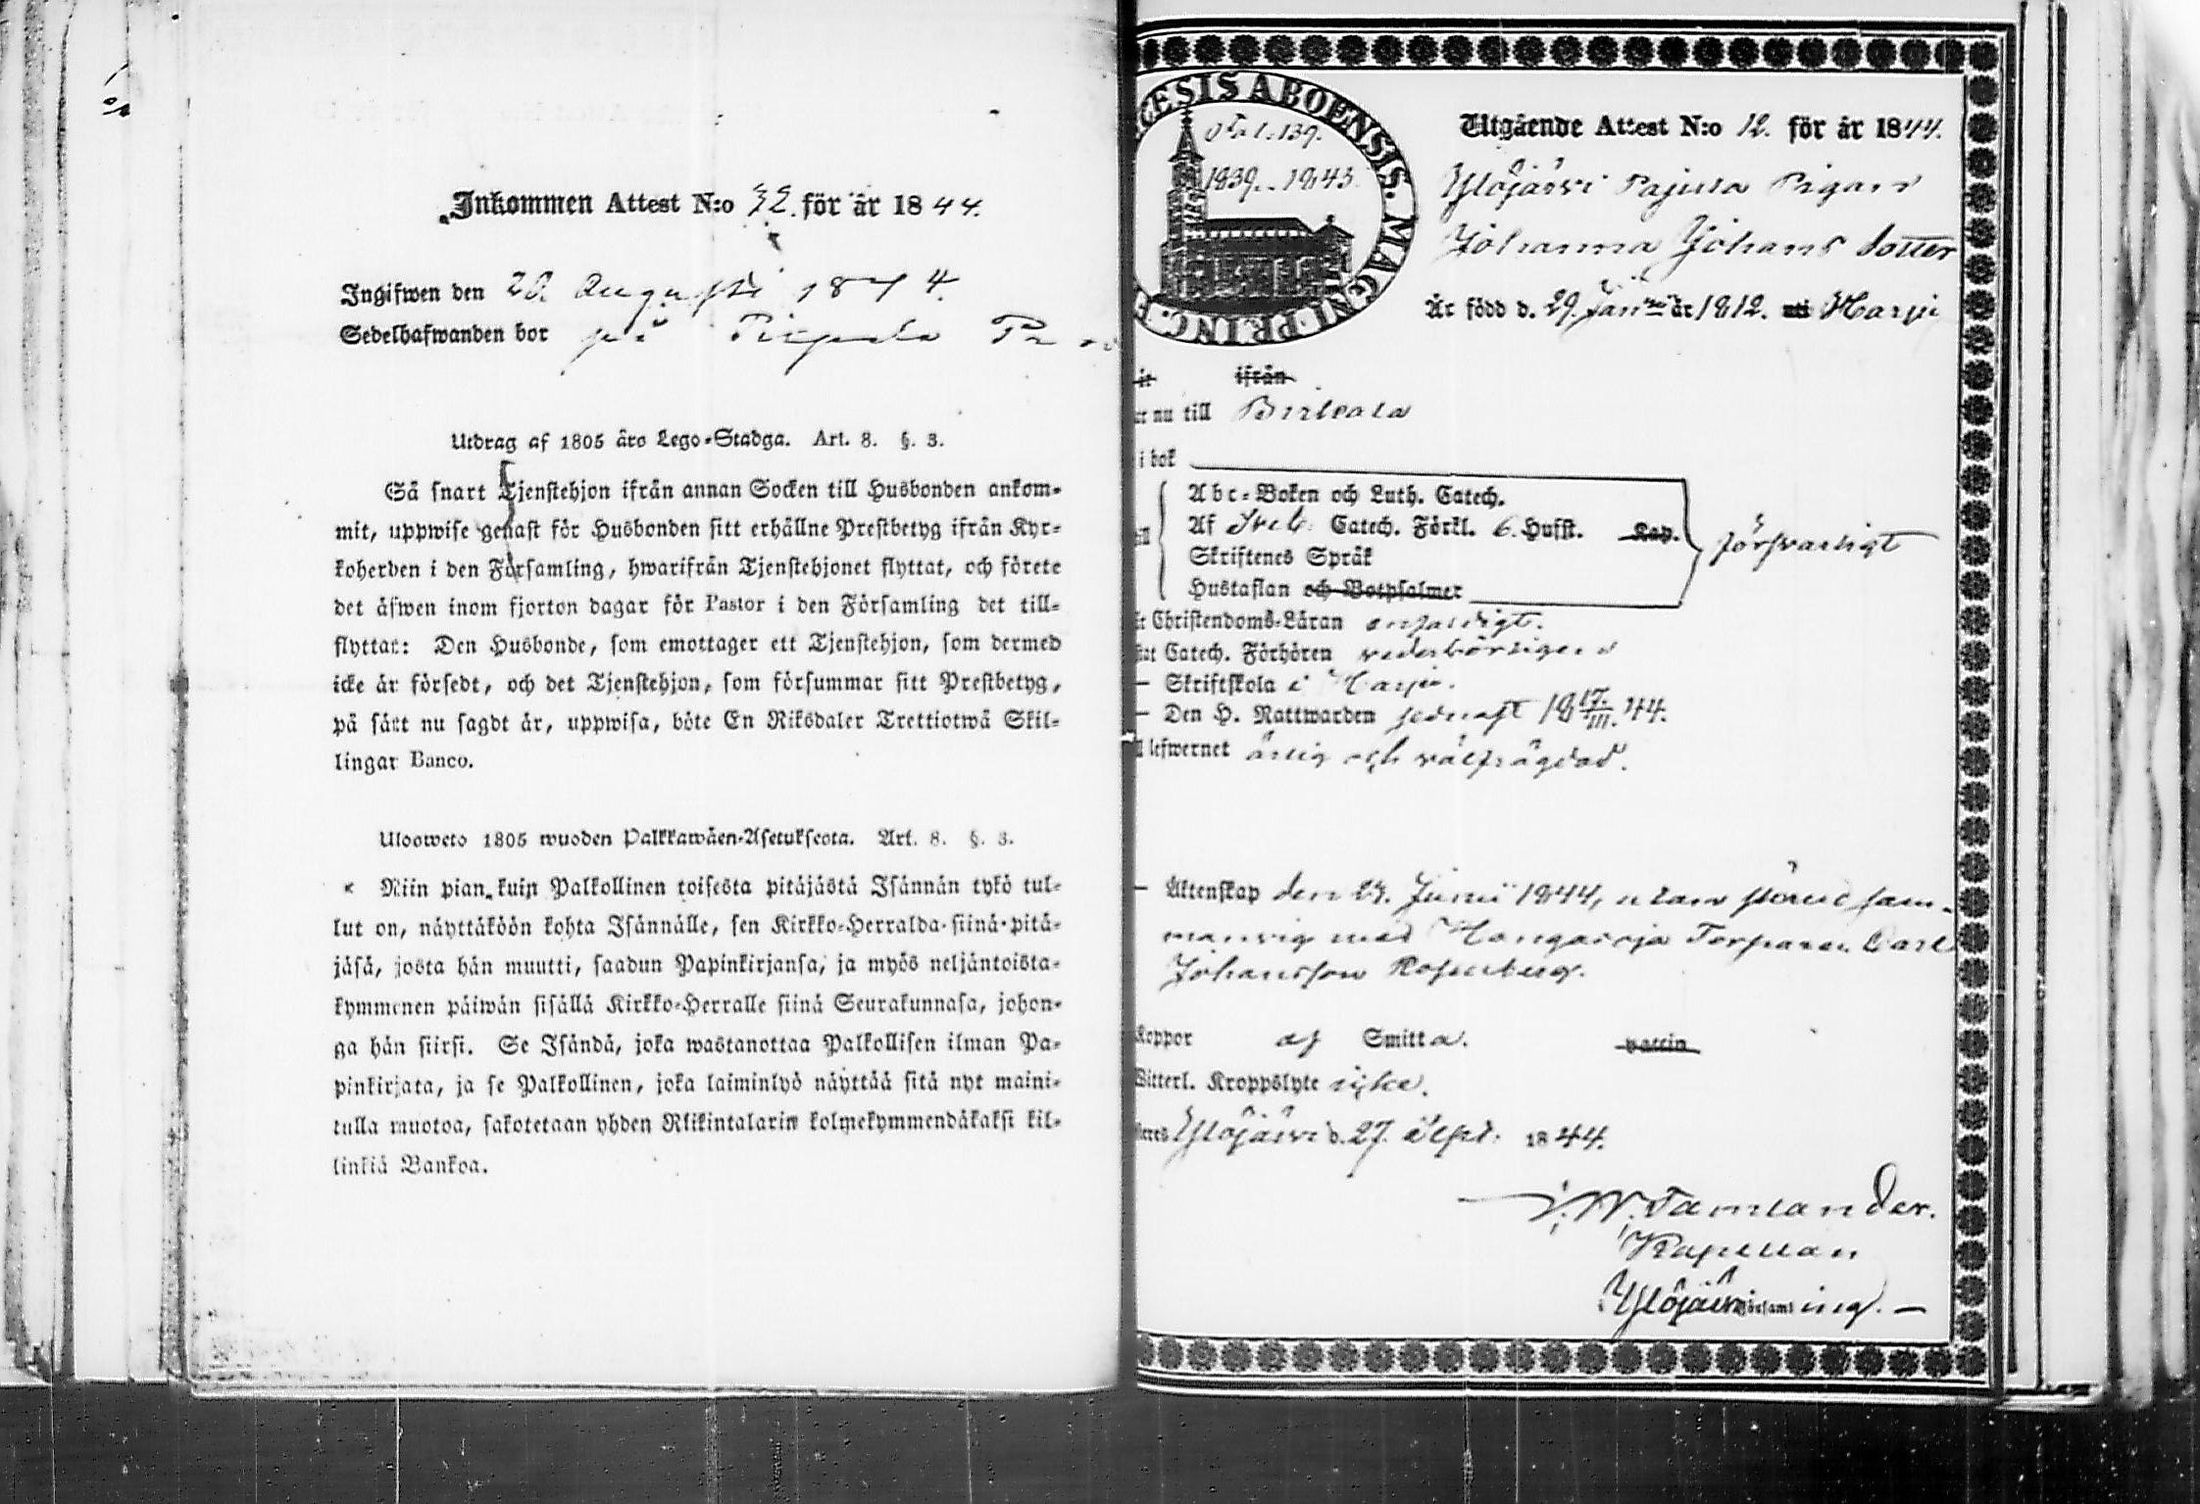 Inkommen Attest N:o 32. för år 1844.
Ingifwen den 20. Augusti 1844.
Sedelhafwanden bor på
Utdrag af 1805 års Lego-Stadga. Art. 8. §. 3.
Så snart Tjenstehjon ifrån annan Socken till Husbonden ankom-
mit, uppwise genast för Husbonden sitt erhållne Prestbetyg ifrån Kyr-
koherden i den Församling, hwarifrån Tjenstehjonet flyttat, och förete
det äfwen inom fjorton dagar för Pastor i den Församling det till-
flyttat: Den Husbonde, som emottager ett Tjenstehjon, som dermed
icke är försedt, och det Tjenstehjon, som försummar sitt Prestbetyg,
på sätt nu sagdt är, uppwisa, böte En Riksdaler Trettiotwå Skil-
lingar Banco.
Uloosweto 1805 wuoden Palkkawäen-Asetuksesta. Art. 8. §. 3.
Niin pian kuin Palkollinen toisesta pitäjästä Isännän tykö tul-
lut on, näyttäköön kohta Isännälle, sen Kirkko-Herralda siinä pitä-
jäsä, josta hän muutti, saadun Papinkirjansa, ja myös neljäntoista-
kymmenen päiwän sisällä Kirkko-Herralle siinä Seurakunnasa, johon-
ga hän siirsi. Se Isändä, joka wastanottaa Palkollisen ilman Pa-
pinkirjata, ja se Palkollinen, joka laiminlyö näyttää sitä nyt maini-
tulla muotoa, sakotetaan yhden Rikintalarin kolmekymmendäkaksi kil-
linkiä Bankoa.
ŒCESIS ABOENSIS. MAGNI PRINC. F
1839-1843.
Utgående Attest N:o 12. för år 1844.
Ylöjärvi Pajula Pigan
Johanna Johans dotter
Är född d. 29. Jan. år 1812. uti Harju
ifrån
nu till Birkala
i bok
Abc-Boken och Luth. Catech.
Af Sveb. Catech. Förkl. 6. Hufst. Kap. försvarligt
Skriftenes Språk
Hustaflan och Botpsalmer
Christendoms-Läran enfaldigt.
Catech. Förhören vederbörligen
– Skriftskola i Harju.
– Den H. Nattwarden sednast 18 17/III. 44.
lefwernet ärlig och välfrägdad.
– Äktenskap den 23. Junii 1844, utan föräl sam-
manvig med Hangasoja Torparen Carl
Johansson Rosenberg.
Koppor af Smitta. vaccin
Witterl. Kroppslyte icke.
Ylöjärvi d. 27. 1844.
J. W. Tamlander.
Kapellan
Ylöjärvi församling. –